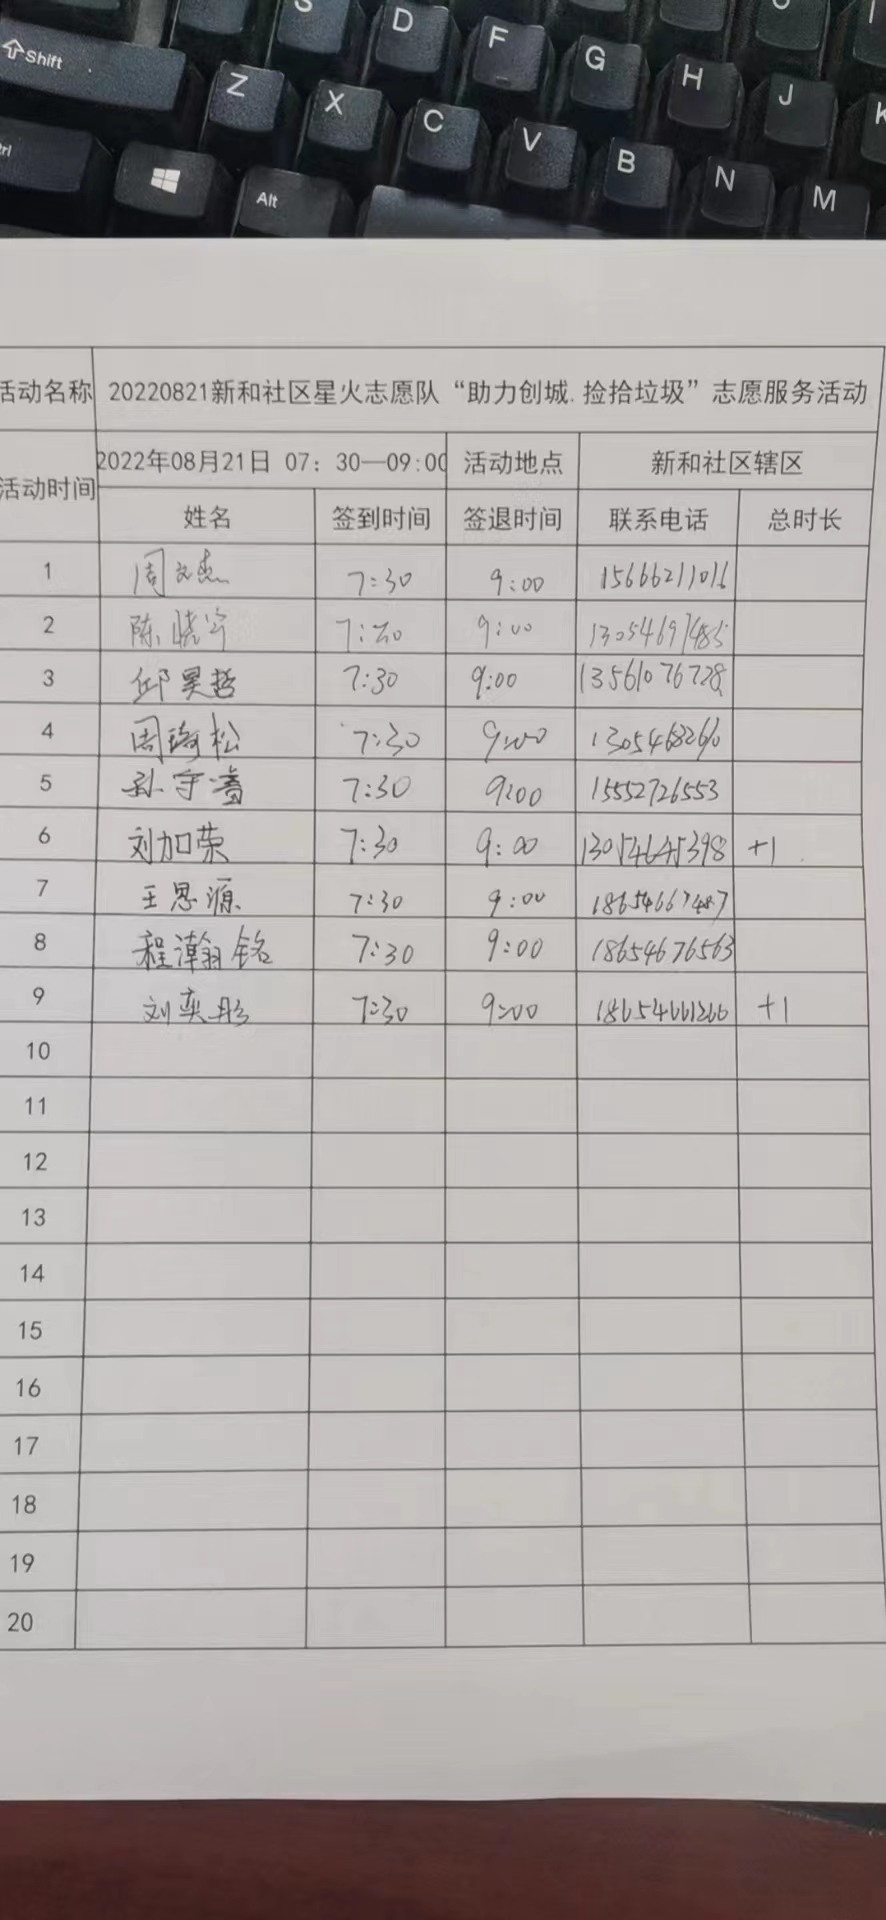 S D F G H J K
Shift Z X C V B N M
Alt
活动名称 20220821新和社区星火志愿队“助力创城.捡拾垃圾”志愿服务活动
活动时间 2022年08月21日 07：30—09:00 活动地点 新和社区辖区
姓名 签到时间 签退时间 联系电话 总时长
1 周文杰 7:30 9:00 15666211016
2 陈晓宇 7:30 9:00 13054697485
3 邱昊哲 7:30 9:00 13561076728
4 周琦松 7:30 9:00
5 孙守 7:30 9:00 15552726553
6 刘加荣 7:30 9:00 13054645398 +1
7 王思源 7:30 9:00 18654667487
8 程瀚铭 7:30 9:00 18654676563
9 刘奕彤 7:30 9:00 18654661266 +1
10
11
12
13
14
15
16
17
18
19
20